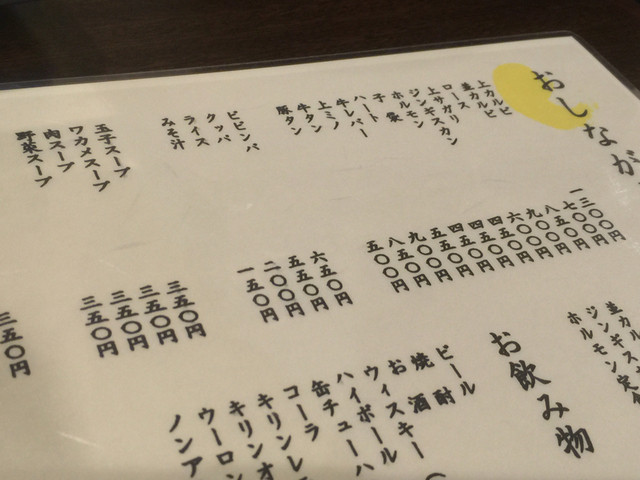 おしなが
上カルビ
並カルビ
ロース
上サガリ
ジンギスカン
ホルモン
子袋
ハート
牛レバー
上ミノ
牛タン
豚タン
一三〇〇円
七〇〇円
八〇〇円
九〇〇円
四五〇円
四五〇円
四五〇円
ビビンバ
クッパ
ライス
みそ汁
六五〇円
五五〇円
二〇〇円
一五〇円
玉子スープ
ワカメスープ
肉スープ
野菜スープ
三五〇円
三五〇円
三五〇円
三五〇円
三五〇円
並カル
ジンギス
ホルモン定
お飲み物
ビール
焼酎
お酒
ウィスキー
ハイボール
缶チューハ
コーラ
キリンレ
キリンオ
ウーロン
ノンア